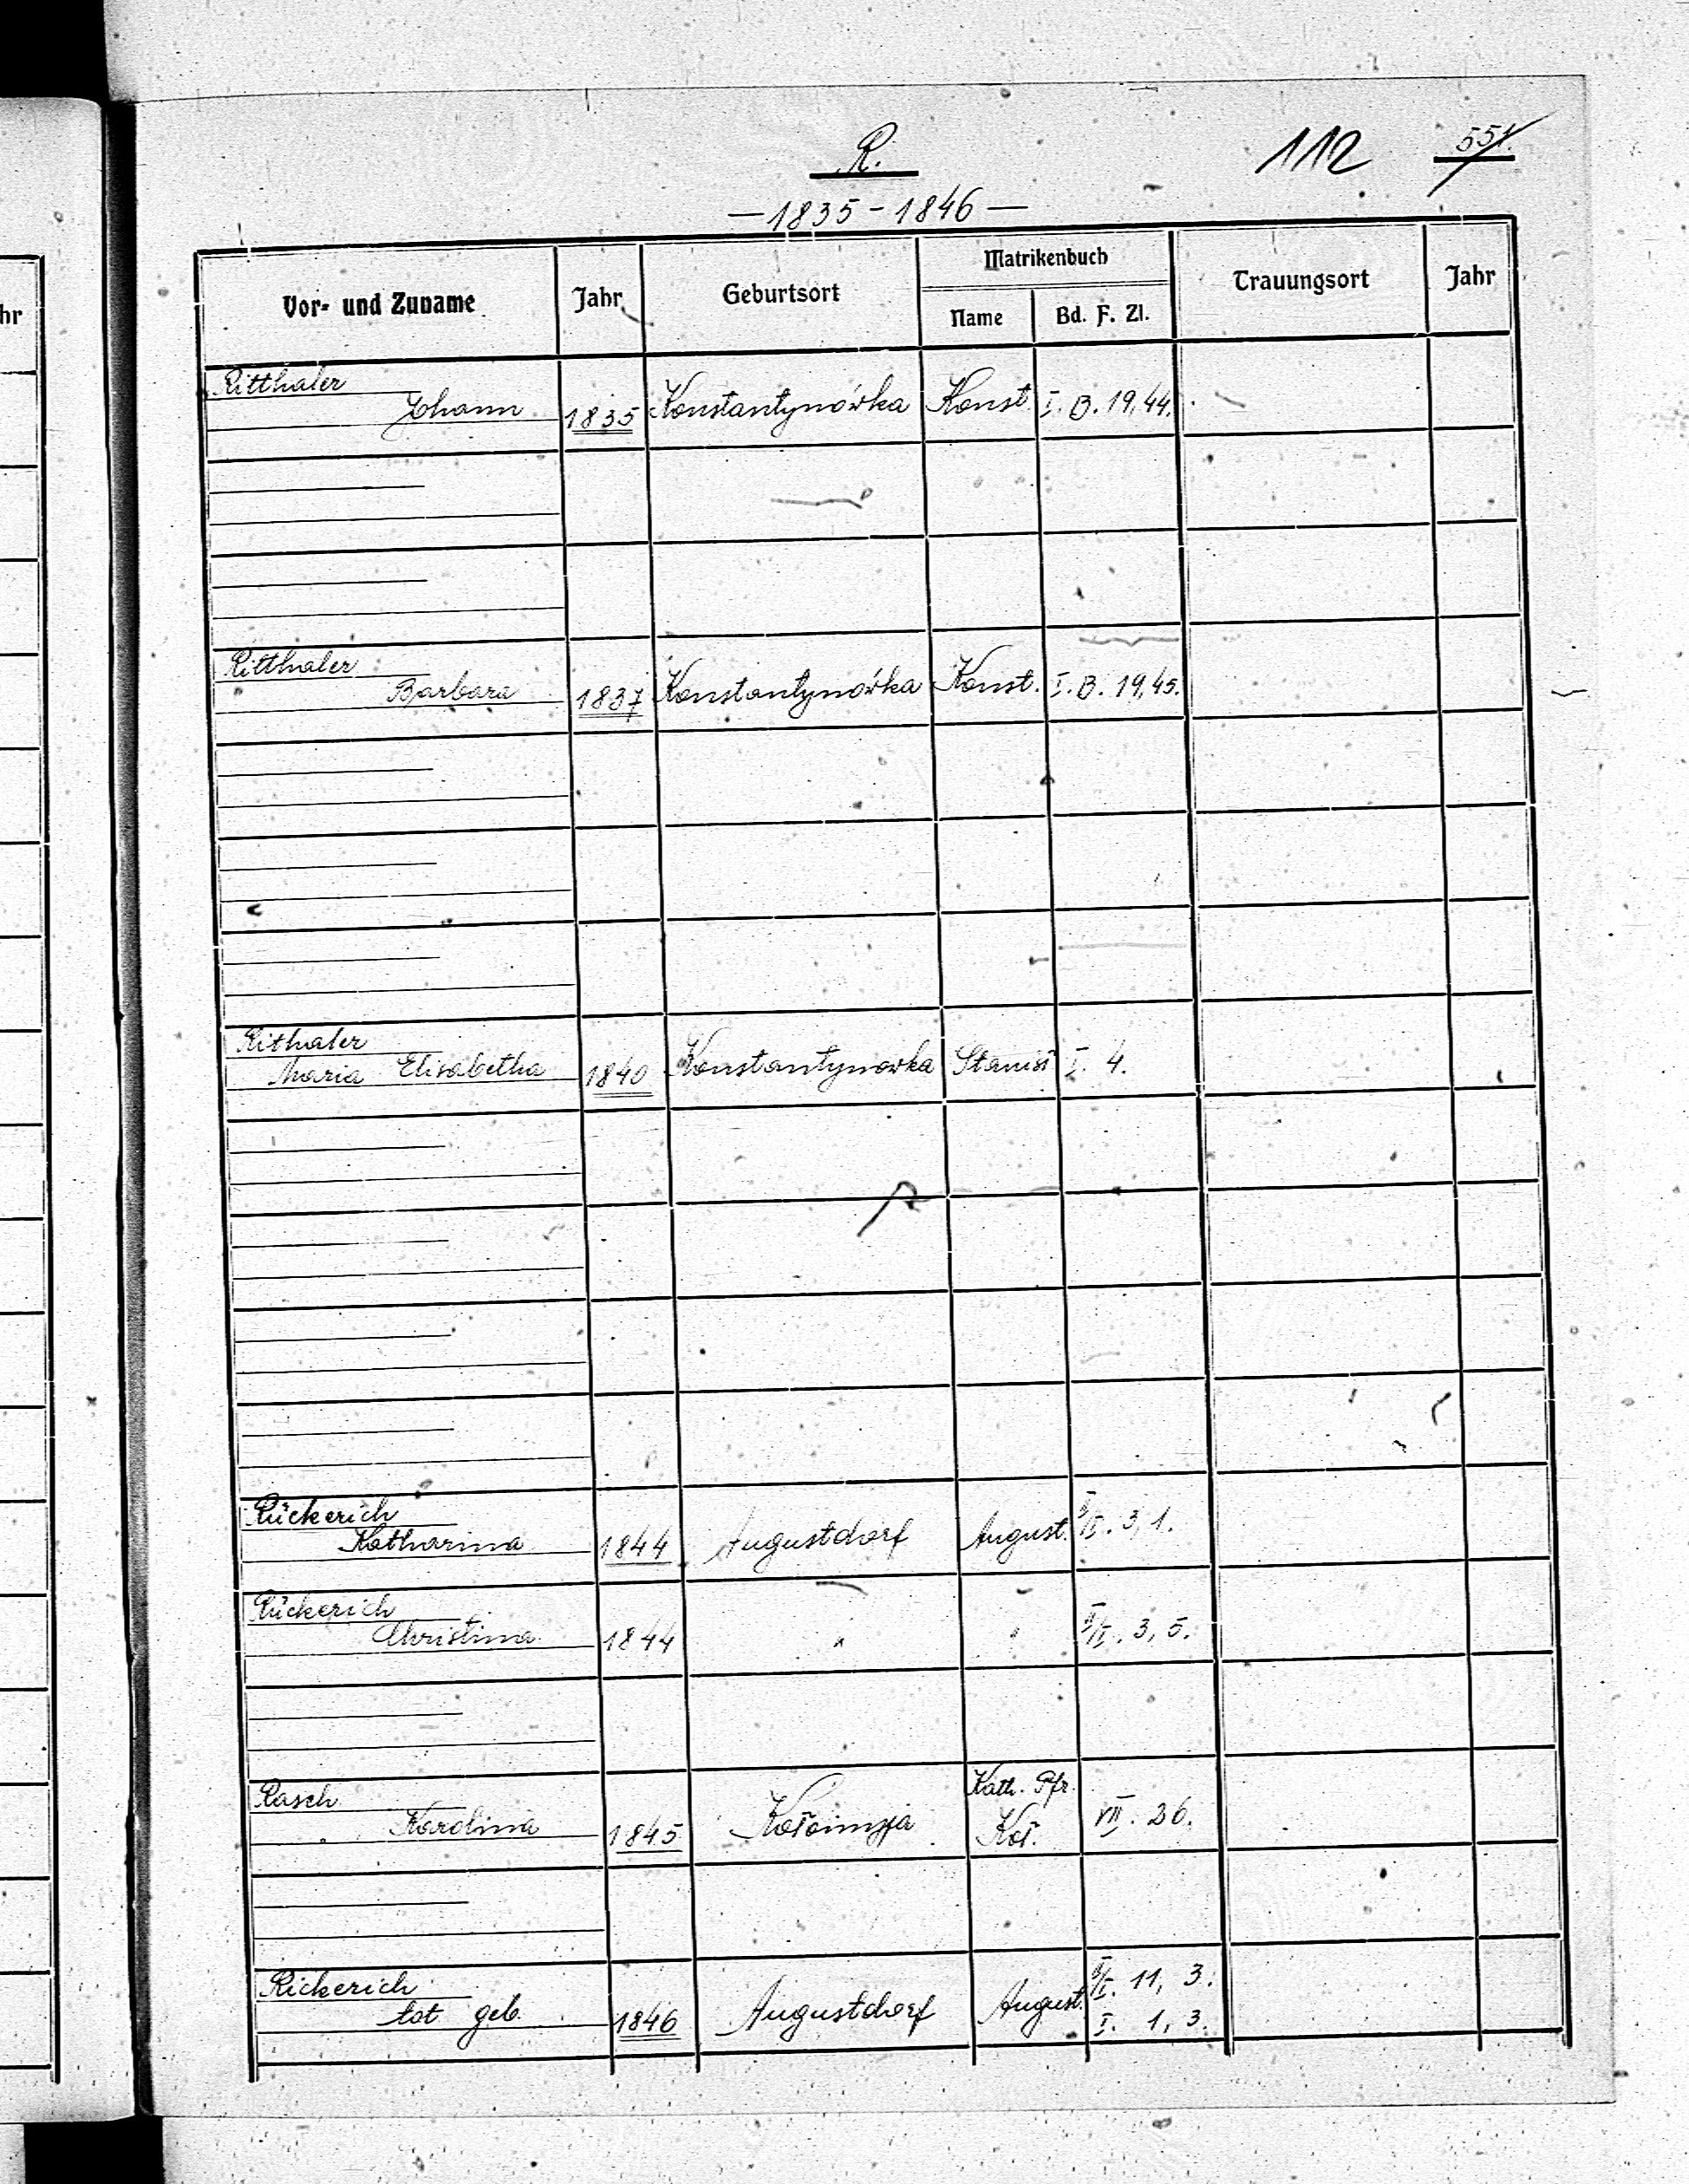 R.
112 551.
— 1835 - 1846 —
hr
Vor- und Zuname Jahr Geburtsort Matrikenbuch Trauungsort Jahr
Name Bd. F. Zl.
Ritthaler
Johann 1835 Konstantynówka Konst. I. B. 19, 44.
Ritthaler
Barbara 1837 Konstantynówka Konst. I. B. 19, 45.
Rithaler
Maria Elisabetha 1840 Konstantynowka Stanisł I. 4.
Rückerich
Katharina 1844 Augustdorf August. 3, 1.
Rückerich
Christina 1844 " " 3, 5.
Rasch Kath. Pfr.
Karolina 1845 Kołomyja Koł. VII. 26.
Rickerich 11, 3.
tot geb. 1846 Augustdorf August. I. 1, 3.